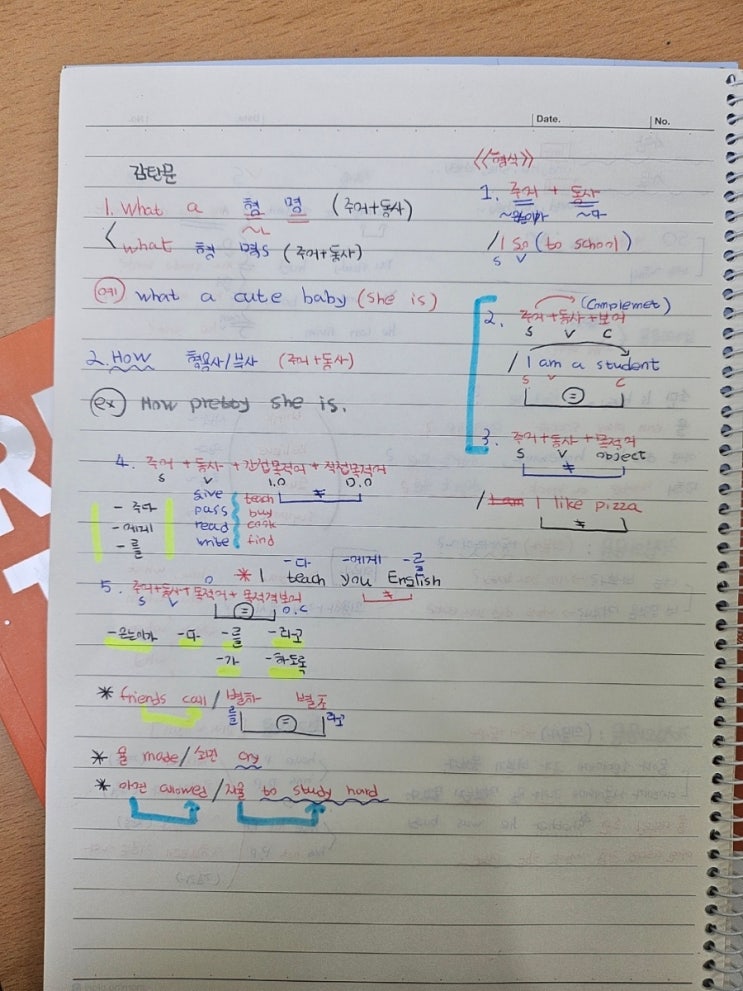 Date.
No.
감탄문
1. What a 형 명 (주어+동사)
~ㄴ
what 형 명s (주어+동사)
예) what a cute baby (she is)
2. How 형용사/부사 (주어+동사)
ex) How pretty she is.
《형식》
1. 주어 + 동사
~다
/ I go (to school)
S V
(Complemet)
2. 주어+동사+보어
S V C
/ I am a student
S V C
=
3. 주어+동사+목적어
S V object
≠
/ I am I like pizza
≠
4. 주어 + 동사 + 간접목적어 + 직접목적어
S V I.O D.O
≠
- 주다
- 에게
- 를
give teach
pass buy
read cook
write find
-다 -에게 -를
* I teach you English
≠
5. 주어+동사+목적어+목적격보어
S V O O.C
=
-은는이가 -다 -를 -라고
-가 -하도록
* friends call / 별하 별초
를 = 라고
* 울 made / 최민 cry
* allowed / to study hard